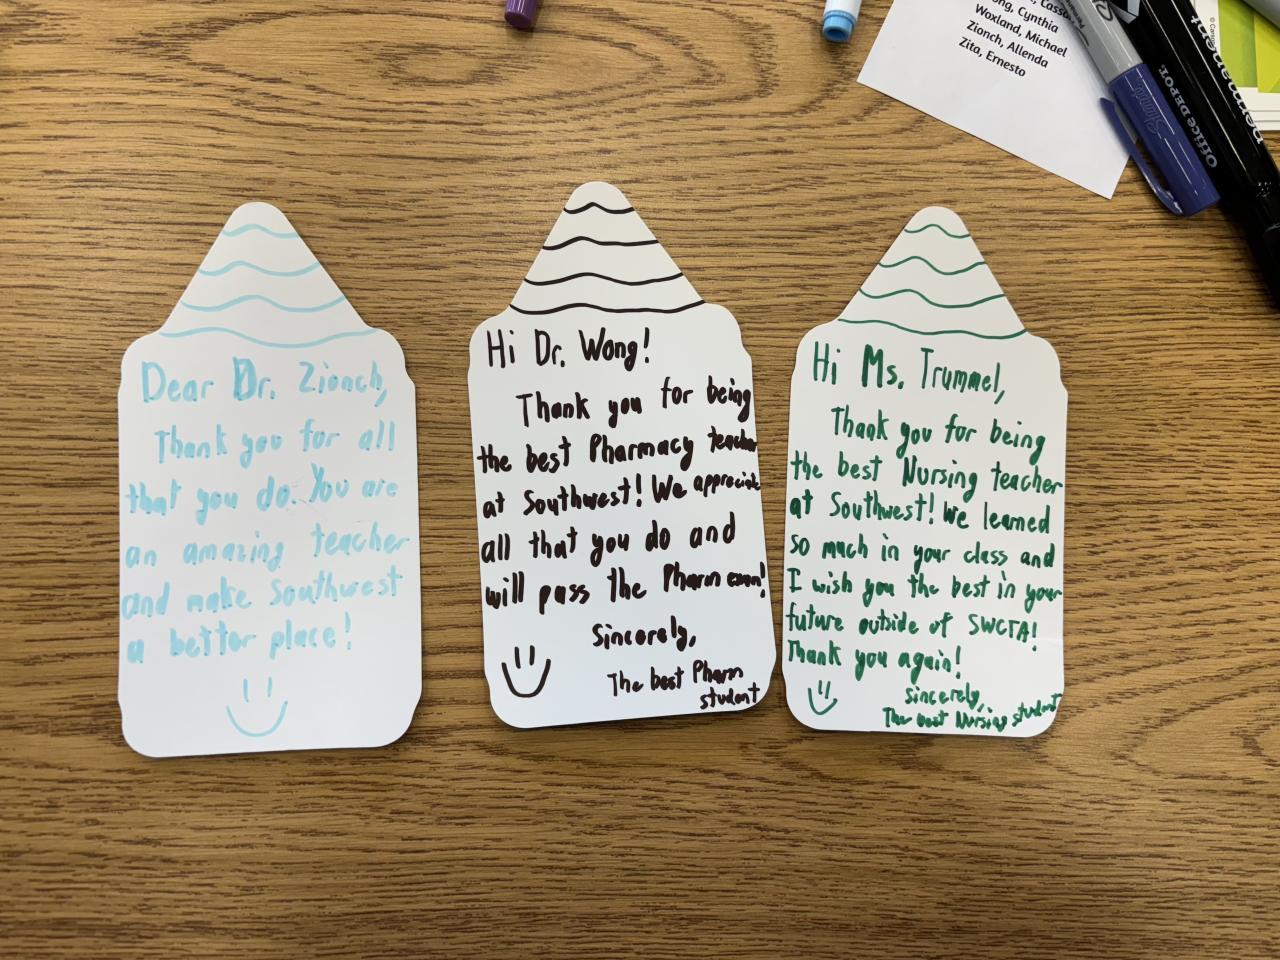 Cynthia
Woxland, Michael
Zionch, Allenda
Zita, Ernesto
OFFICE DEPOT
Dear Dr. Zionch,
Thank you for all
that you do. You are
an amazing teacher
and make Southwest
a better place!
Hi Dr. Wong!
Thank you for being
the best Pharmacy teacher
at Southwest! We appreciate
all that you do and
will pass the Pharm exam!
Sincerely,
The best Pharm
student
Hi Ms. Trummel,
Thank you for being
the best Nursing teacher
at Southwest! We learned
so much in your class and
I wish you the best in your
future outside of SWCTA!
Thank you again!
Sincerely,
The best Nursing student